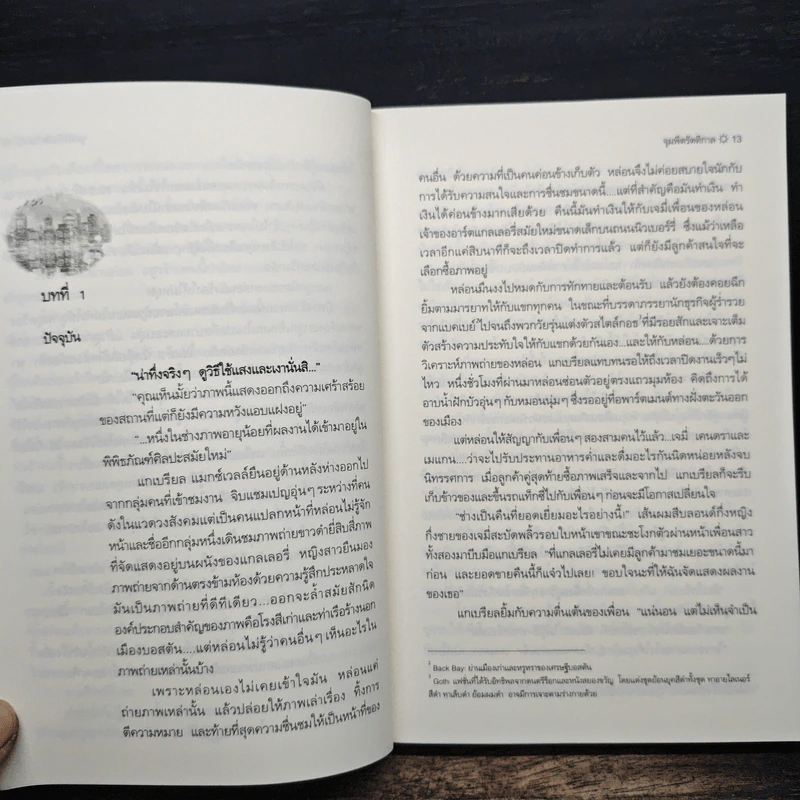 บทที่ 1
ปัจจุบัน
"น่าทึ่งจริงๆ ดูวิธีใช้แสงและเงานั่นสิ..."
"คุณเห็นมั้ยว่าภาพนี้แสดงออกถึงความเศร้าสร้อย
ของสถานที่แต่ก็ยังมีความหวังแอบแฝงอยู่"
"...หนึ่งในช่างภาพอายุน้อยที่ผลงานได้เข้ามาอยู่ใน
พิพิธภัณฑ์ศิลปะสมัยใหม่"
แกเบรียล แมกซ์เวลล์ยืนอยู่ด้านหลังห่างออกไป
จากกลุ่มคนที่เข้าชมงาน จิบแชมเปญอุ่นๆ ระหว่างที่คน
ดังในแวดวงสังคมแต่เป็นคนแปลกหน้าที่หล่อนไม่รู้จัก
หน้าและชื่ออีกกลุ่มหนึ่งเดินชมภาพถ่ายขาวดำยี่สิบสี่ภาพ
ที่จัดแสดงอยู่บนผนังของแกลเลอรี่ หญิงสาวยืนมอง
ภาพถ่ายจากด้านตรงข้ามห้องด้วยความรู้สึกประหลาดใจ
มันเป็นภาพถ่ายที่ดีทีเดียว...ออกจะล้ำสมัยสักนิด
องค์ประกอบสำคัญของภาพคือโรงสีเก่าและท่าเรือร้างนอก
เมืองบอสตัน....แต่หล่อนไม่รู้ว่าคนอื่นๆ เห็นอะไรใน
ภาพถ่ายเหล่านั้นบ้าง
เพราะหล่อนเองไม่เคยเข้าใจมัน หล่อนแค่
ถ่ายภาพเหล่านั้น แล้วปล่อยให้ภาพเล่าเรื่อง ทิ้งการ
ตีความหมาย และท้ายที่สุดความชื่นชมให้เป็นหน้าที่ของ
จุมพิตรัตติกาล 13
คนอื่น ด้วยความที่เป็นคนค่อนข้างเก็บตัว หล่อนจึงไม่ค่อยสบายใจนักกับ
การได้รับความสนใจและการชื่นชมขนาดนี้....แต่ที่สำคัญคือมันทำเงิน ทำ
เงินได้ค่อนข้างมากเสียด้วย คืนนี้มันทำเงินให้กับเจมี่เพื่อนของหล่อน
เจ้าของอาร์ตแกลเลอรี่สมัยใหม่ขนาดเล็กบนถนนนิวเบอร์รี่ ซึ่งแม้ว่าเหลือ
เวลาอีกแค่สิบนาทีก็จะถึงเวลาปิดทำการแล้ว แต่ก็ยังมีลูกค้าสนใจที่จะ
เลือกซื้อภาพอยู่
หล่อนมึนงงไปหมดกับการทักทายและต้อนรับ แล้วยังต้องคอยฉีก
ยิ้มตามมารยาทให้กับแขกทุกคน ในขณะที่บรรดาภรรยานักธุรกิจผู้ร่ำรวย
จากแบคเบย์² ไปจนถึงพวกวัยรุ่นแต่งตัวสไตล์กอธ³ ที่มีรอยสักและเจาะเต็ม
ตัวสร้างความประทับใจให้กับแขกด้วยกันเอง...และให้กับหล่อน....ด้วยการ
วิเคราะห์ภาพถ่ายของหล่อน แกเบรียลแทบทนรอให้ถึงเวลาปิดงานเร็วๆ ไม่
ไหว หนึ่งชั่วโมงที่ผ่านมาหล่อนซ่อนตัวอยู่ตรงแถวมุมห้อง คิดถึงการได้
อาบน้ำฝักบัวอุ่นๆ กับหมอนนุ่มๆ ซึ่งรออยู่ที่อพาร์ตเมนต์ทางฝั่งตะวันออก
ของเมือง
แต่หล่อนให้สัญญากับเพื่อนๆ สองสามคนไว้แล้ว...เจมี่ เคนดราและ
เมแกน....ว่าจะไปรับประทานอาหารค่ำและดื่มอะไรกันนิดหน่อยหลังจบ
นิทรรศการ เมื่อลูกค้าคู่สุดท้ายซื้อภาพเสร็จและจากไป แกเบรียลก็จะรีบ
เก็บข้าวของและขึ้นรถแท็กซี่ไปกับเพื่อนๆ ก่อนจะมีโอกาสเปลี่ยนใจ
"ช่างเป็นคืนที่ยอดเยี่ยมอะไรอย่างนี้!" เส้นผมสีบลอนด์กึ่งหญิง
กึ่งชายของเจมี่สะบัดพลิ้วรอบใบหน้าเขาขณะชะโงกตัวผ่านหน้าเพื่อนสาว
ทั้งสองมาบีบมือแกเบรียล "ที่แกลเลอรี่ไม่เคยมีลูกค้ามาชมเยอะขนาดนี้มา
ก่อน และยอดขายคืนนี้ก็แจ๋วไปเลย! ขอบใจนะที่ให้ฉันจัดแสดงผลงาน
ของเธอ"
แกเบรียลยิ้มกับความตื่นเต้นของเพื่อน "แน่นอน แต่ไม่เห็นจำเป็น
² Back Bay: ย่านเมืองเก่าและหรูหราของเศรษฐีบอสตัน
³ Goth: แฟชั่นที่ได้รับอิทธิพลจากดนตรีร็อกและหนังสยองขวัญ โดยแต่งชุดย้อนยุคสีดำทั้งชุด ทาอายไลเนอร์
สีดำ ทาเล็บดำ ย้อมผมดำ อาจมีการเจาะตามร่างกายด้วย